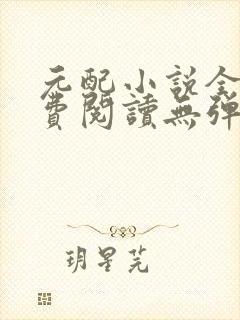 元配小说全
费閱讀無彈
玥星芫